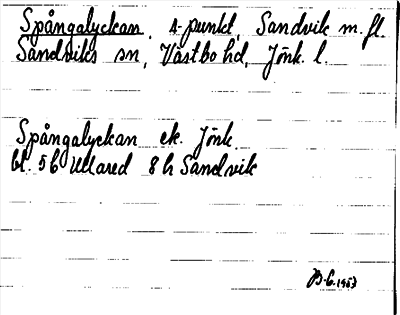 Spångalyckan, A-punkt, Sandvik m. fl.
Sandviks sn, Västbo hd, Jönk. l.
Spångalyckan ek. Jönk.
bl. 5b Ullared 8 h Sandvik
B-G. 1953